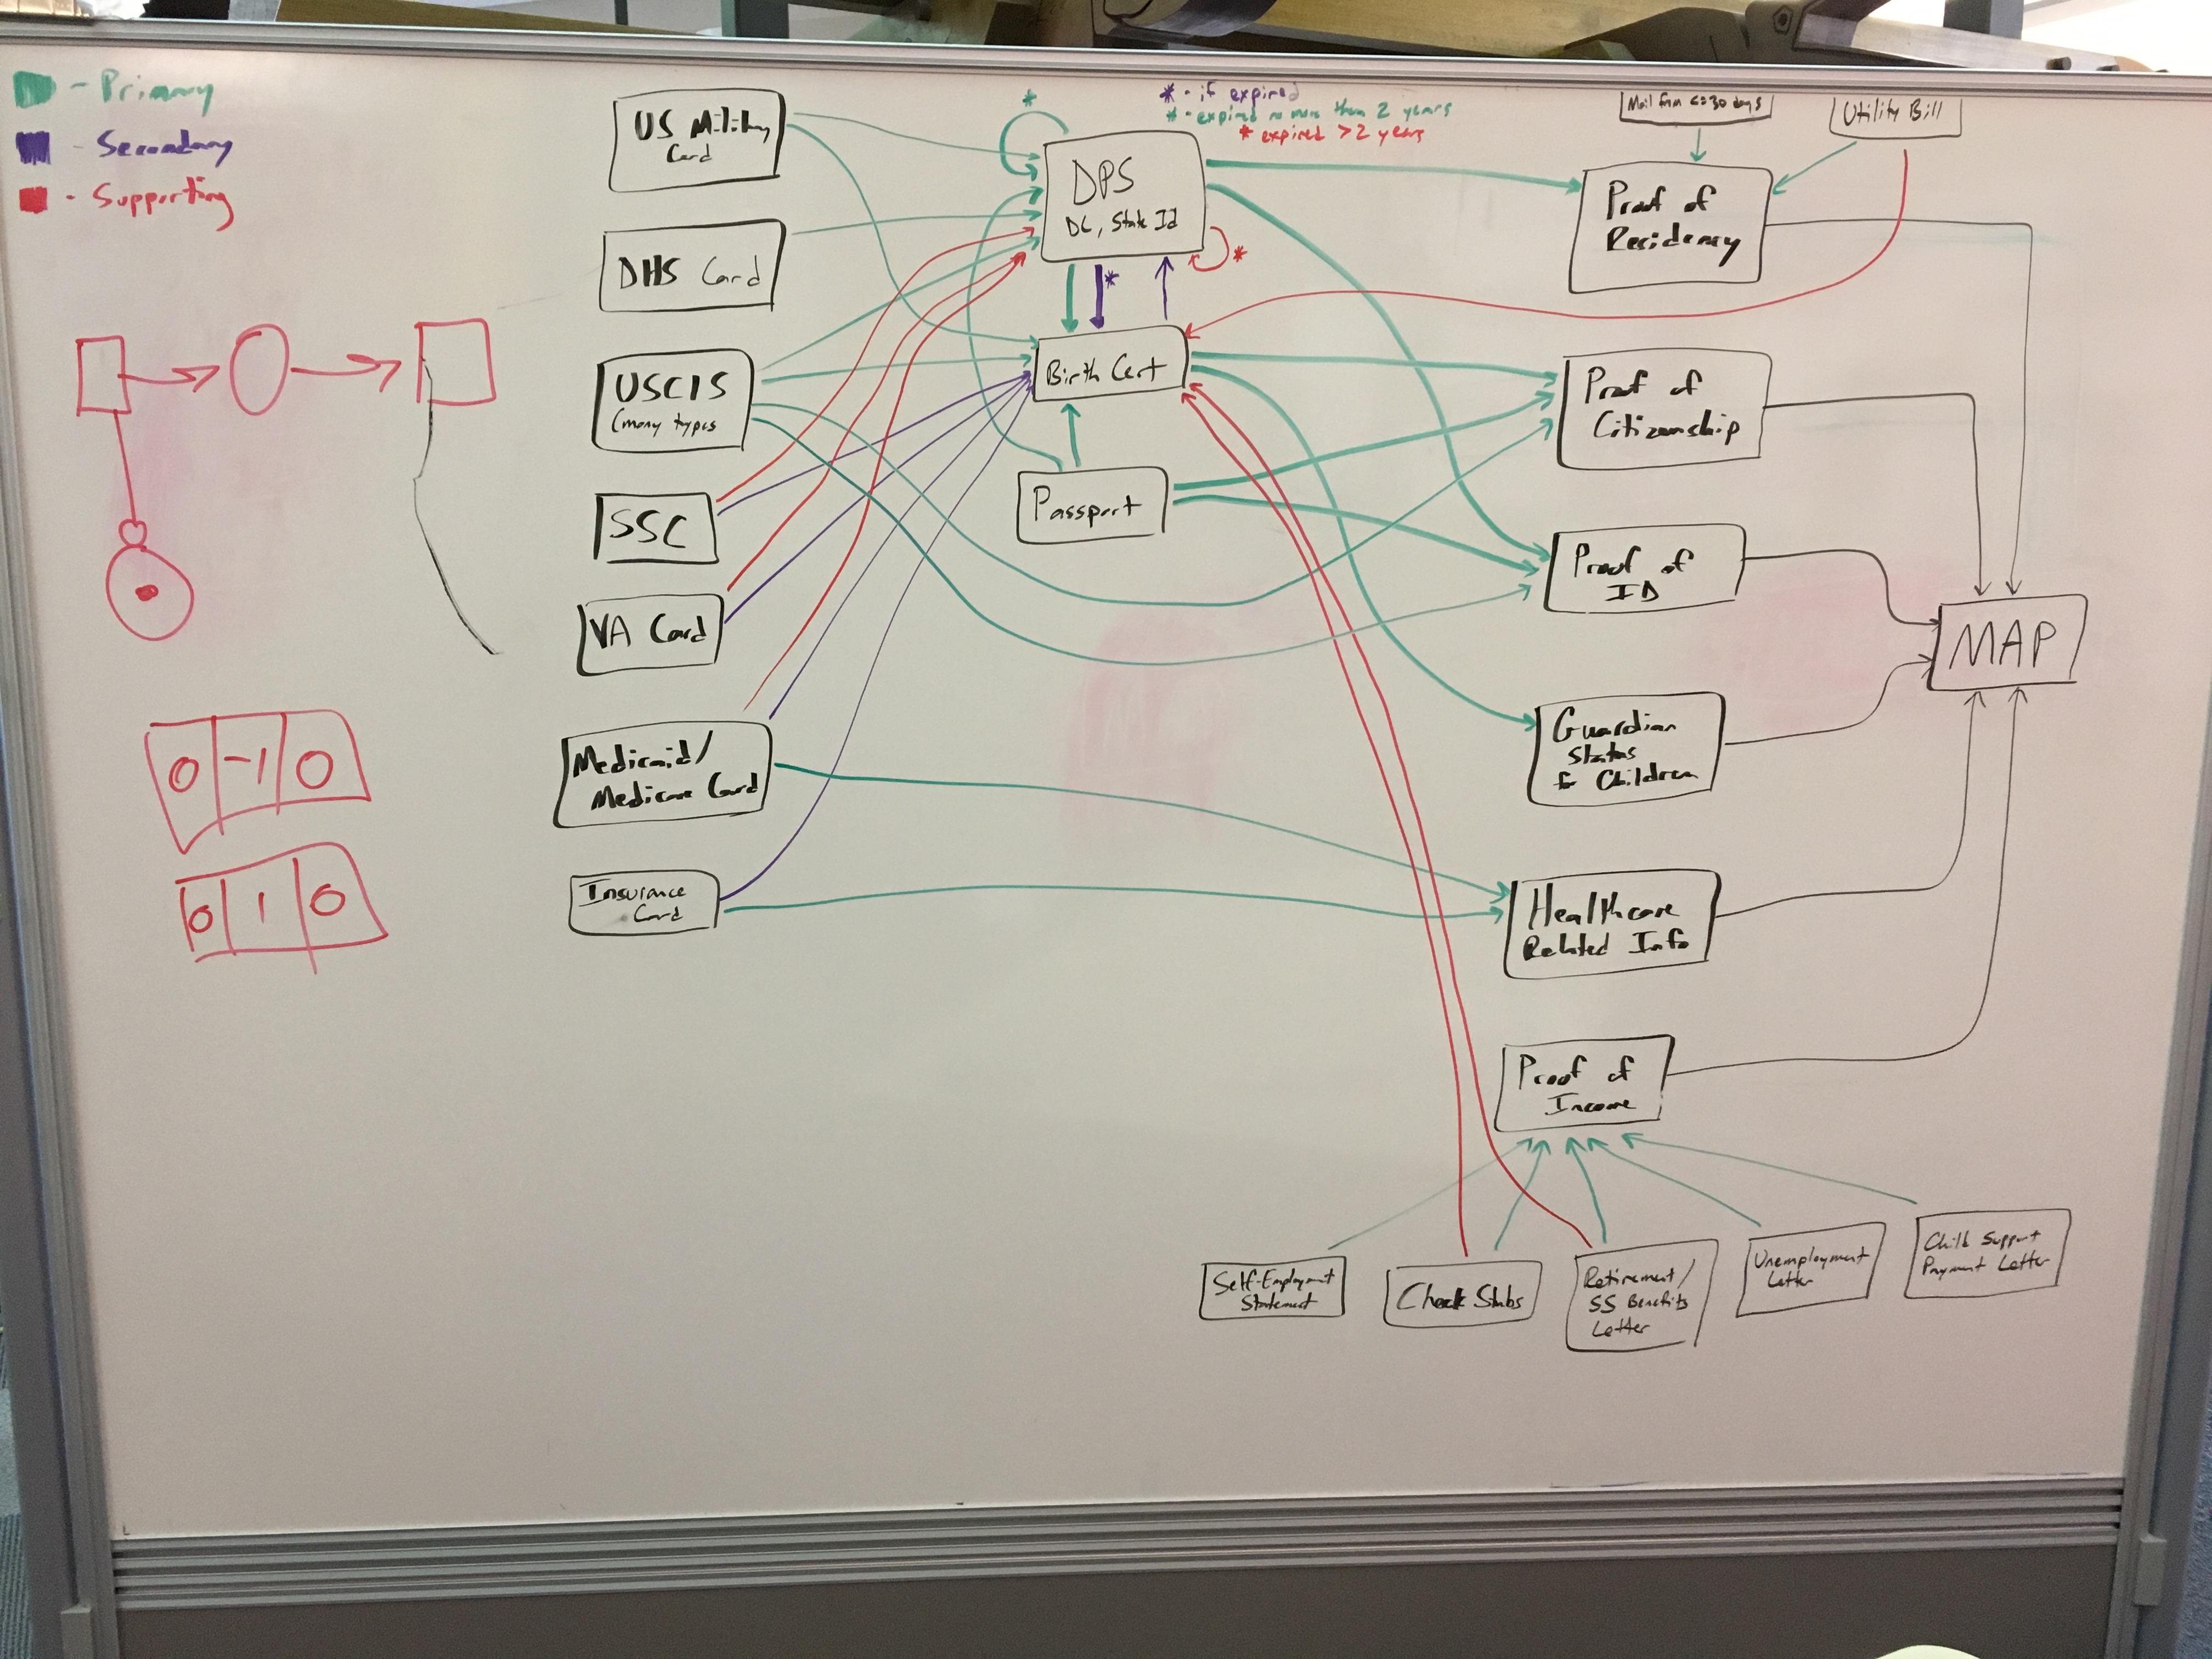 - Primary
- Secondary
- Supporting
US Military
Card
DHS Card
USCIS
(many types
SSC
VA Card
Medicaid/
Medicare Card
Insurance
Card
0 -1 0
0 1 0
* - if expired
* - expired no more than 2 years
* expired >2 years
*
DPS
DL, State Id
*
*
Birth Cert
Passport
Mail from <=30 days
Utility Bill
Proof of
Residency
Proof of
Citizenship
Proof of
ID
Guardian
Status
for Children
Healthcare
Related Info
Proof of
Income
MAP
Self-Employment
Statement
Check Stubs
Retirement/
SS Benefits
Letter
Unemployment
Letter
Child Support
Payment Letter